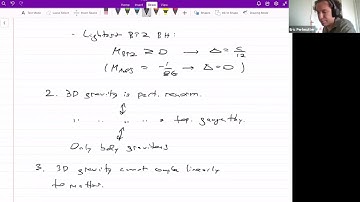 - Lightest BTZ BH:
M_BTZ ≥ 0 → Δ = c/12
(M_AdS = -1/8G → Δ = 0)
2. 3D gravity is pert. renorm.
" " " " top. gauge thy.
Only bdy gravitons
3. 3D gravity cannot couple linearly
to matter.